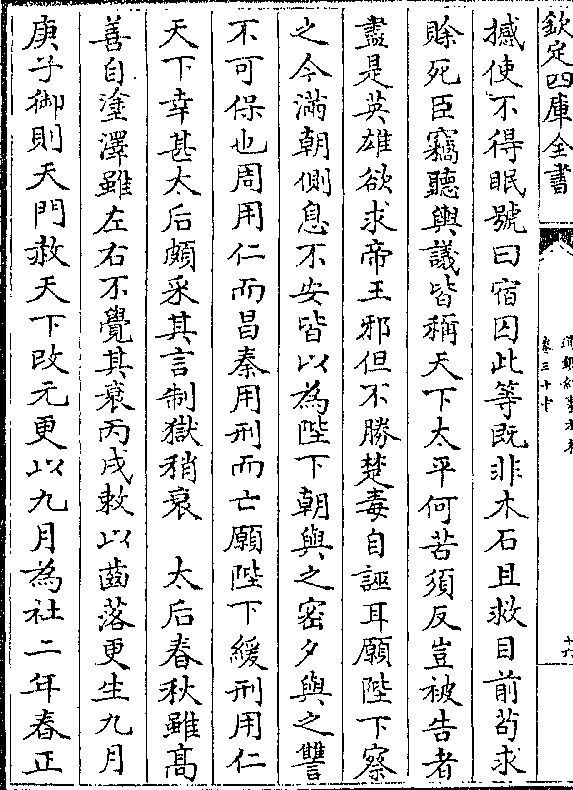 欽定四庫全書
撼使不得眠號曰宿囚此等既非木石且救目前茍求
賒死臣竊聽輿議皆稱天下太平何苦須反豈被告者
盡是英雄欲求帝王邪但不勝楚毒自誣耳願陛下察
之今滿朝側息不安皆以為陛下朝與之密夕與之讐
不可保也周用仁而昌秦用刑而亡願陛下緩刑用仁
天下幸甚太后頗采其言制獄稍衰　太后春秋雖高
善自塗澤雖左右不覺其衰丙戌敕以齒落更生九月
庚子御則天門赦天下改元更以九月為社二年春正